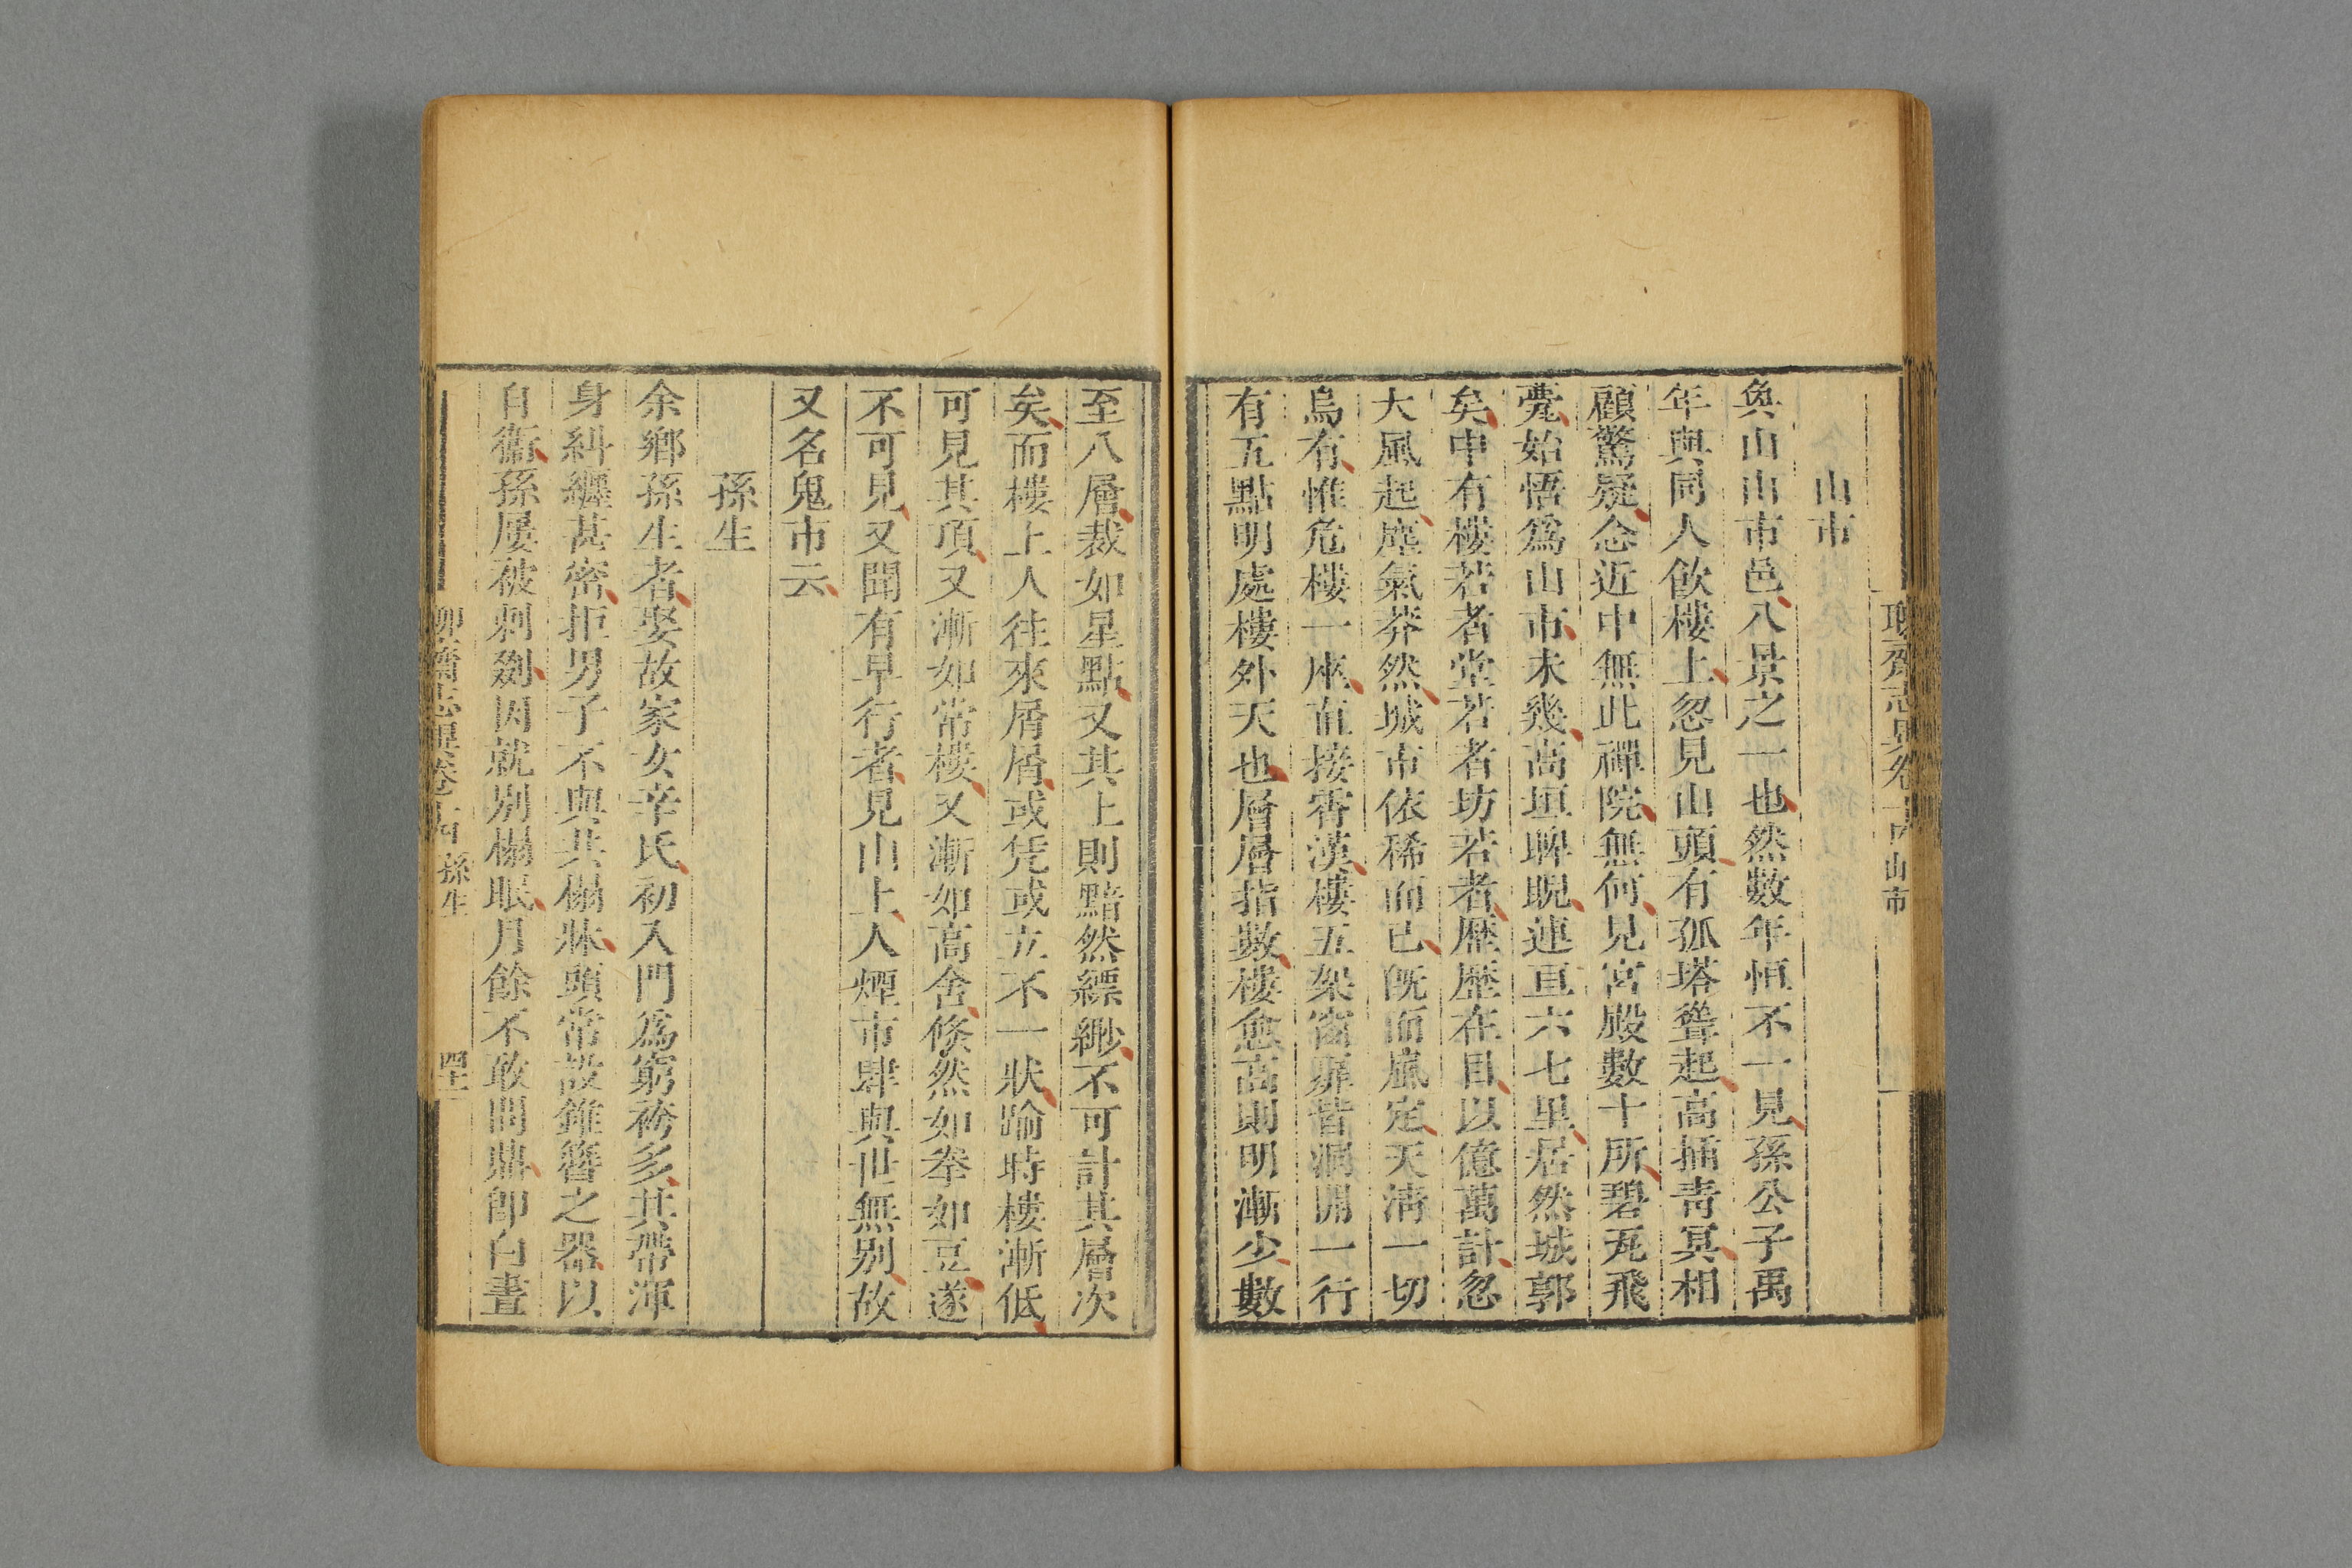 聊齋志異卷十四 山市
山市
奐山山市邑八景之一也然數年恒不一見孫公子禹
年與同人飲樓上忽見山頭有孤塔聳起高插青冥相
顧驚疑念近中無此禪院無何見宮殿數十所碧瓦飛
甍始悟為山市未幾高垣睥睨連亘六七里居然城郭
矣中有樓若者堂若者坊若者歷歷在目以億萬計忽
大風起塵氣莽然城市依稀而已既而風定天清一切
烏有惟危樓一座直接霄漢樓五架窗扉皆洞開一行
有五點明處樓外天也層層指數樓愈高則明漸少數
至八層裁如星點又其上則黯然縹緲不可計其層次
矣而樓上人往來屑屑或凭或立不一狀踰時樓漸低
可見其頂又漸如常樓又漸如高舍倏然如拳如豆遂
不可見又聞有早行者見山上人煙市肆與世無別故
又名鬼市云
孫生
余鄉孫生者娶故家女辛氏初入門為窮袴多其帶渾
身糾纏甚密拒男子不與共榻牀頭常設錐簪之器以
自衞孫屢被刺劙因就別榻眠月餘不敢問鼎即白晝
聊齋志異卷十四 孫生